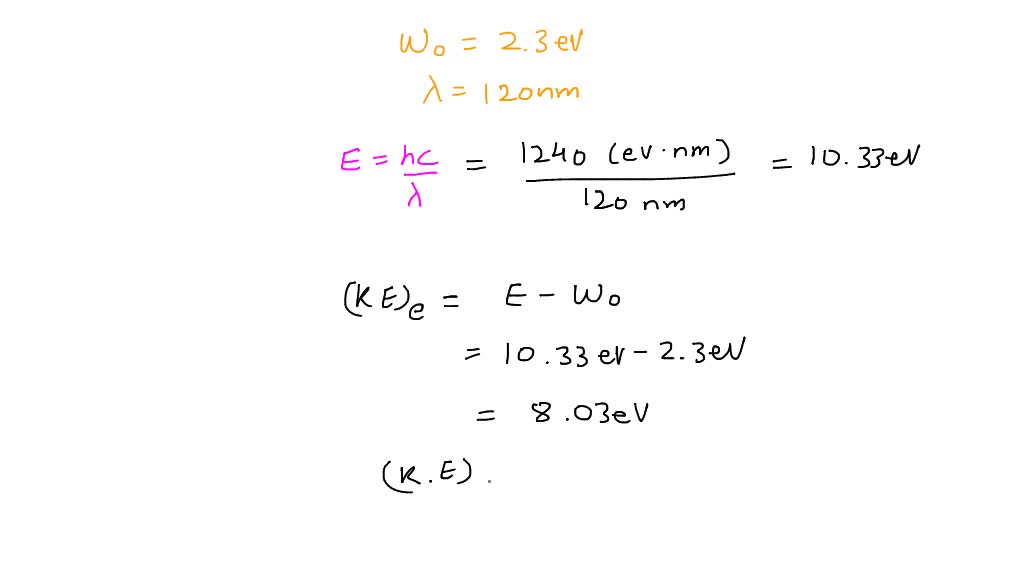 W₀ = 2.3 eV
λ = 120nm
E = hc/λ = 1240 (ev·nm)/120 nm = 10.33eV
(KE)e = E - W₀
= 10.33 eV - 2.3eV
= 8.03eV
(K.E) .